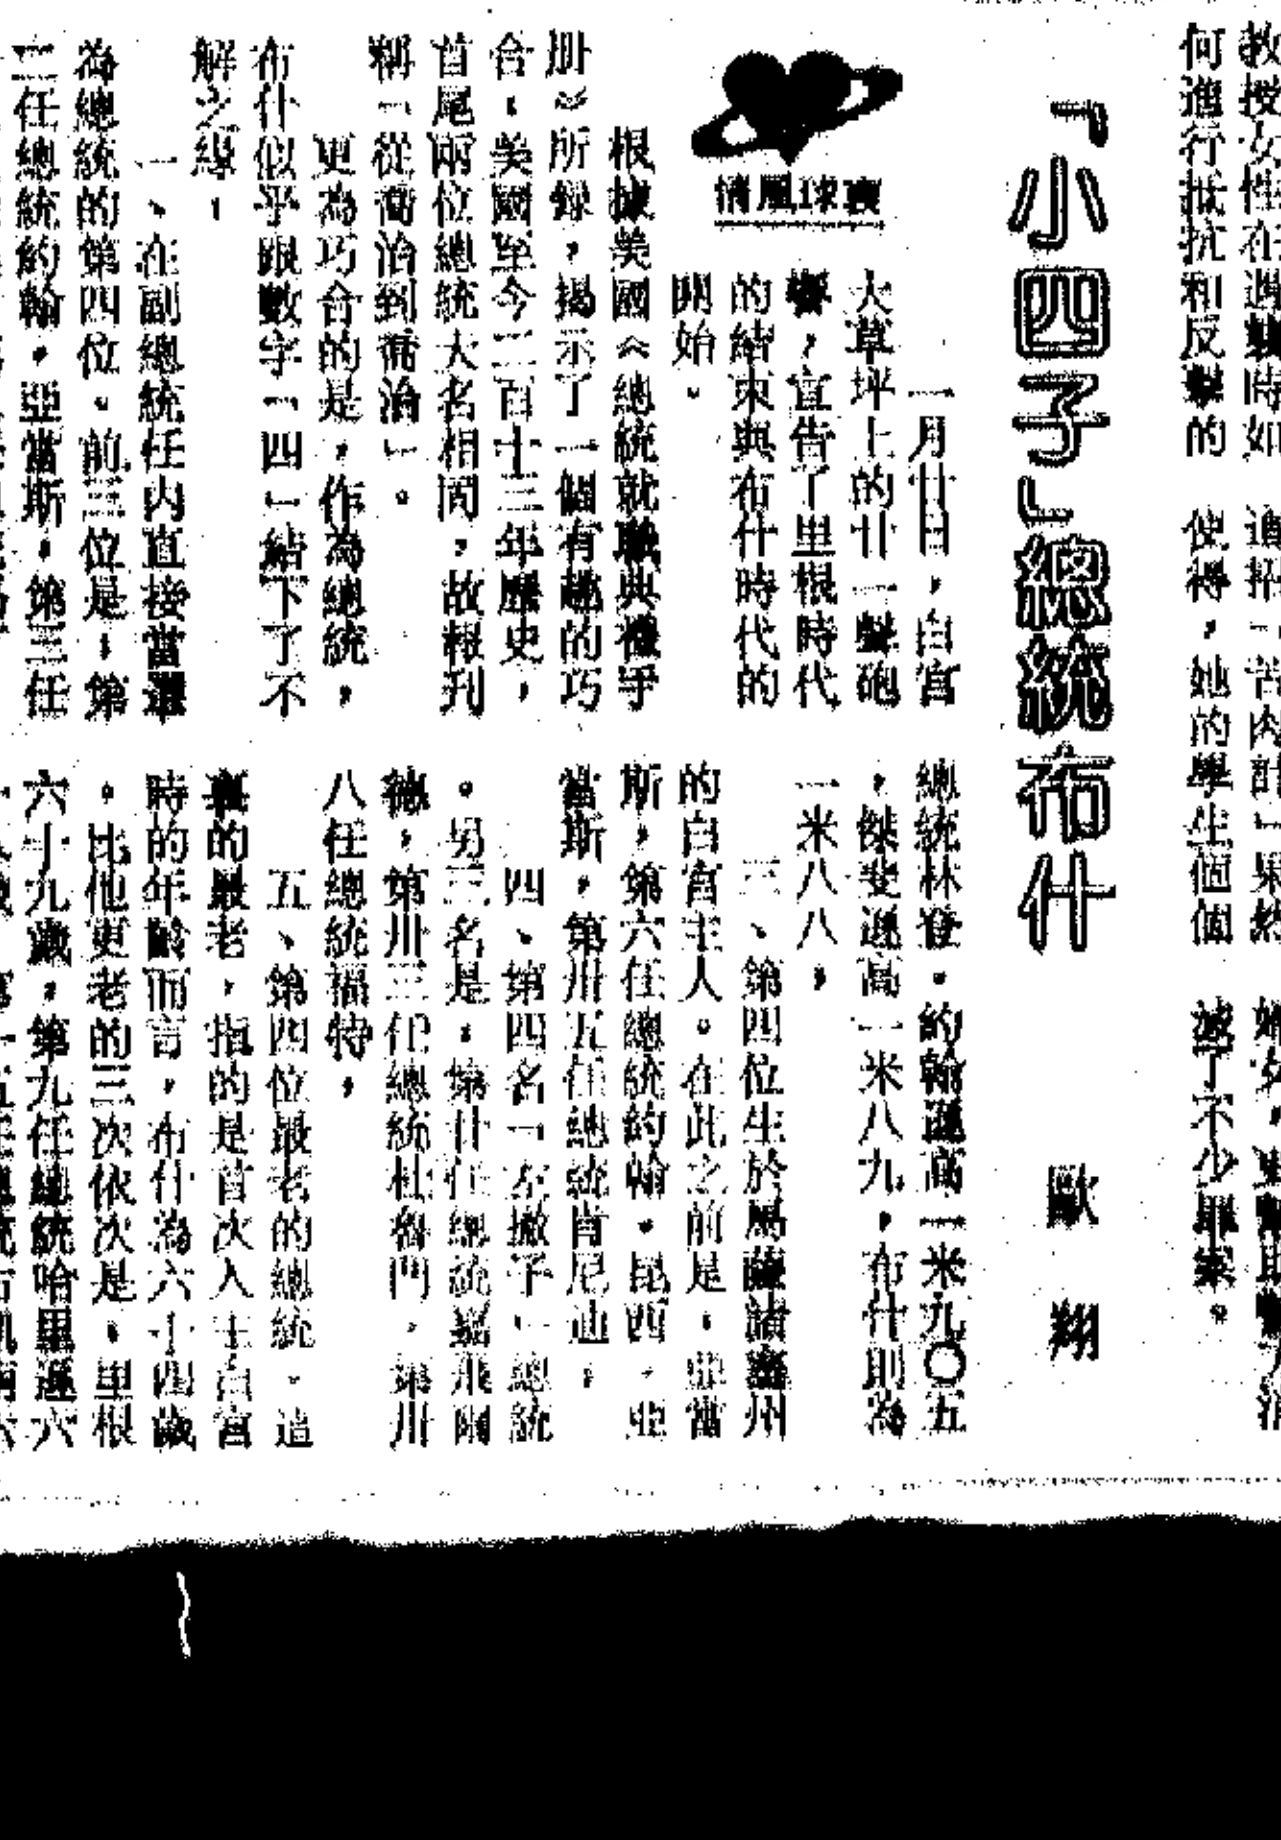 教授女性在遇襲時如
何進行抵抗和反擊的
使得,她的學生個個
滅了不少罪案。
「小四子」總統布什
歐翔
寰球風情
一月廿日,白宮
大草坪上的廿一聲砲
響,宣告了里根時代
的結束與布什時代的
開始。
根據美國《總統就職典禮手
册》所錄,揭示了一個有趣的巧
合:美國至今二百十三年歷史,
首尾兩位總統大名相同,故報刊
稱「從喬治到喬治」。
更為巧合的是,作為總統,
布什似乎跟數字「四」結下了不
解之緣:
一、在副總統任內直接當選
為總統的第四位。前三位是:第
二任總統約翰·亞當斯,第三任
總統林登·約翰遜高一米九〇五
,傑斐遜高一米八九,布什則為
一米八八,
三、第四位生於馬薩諸塞州
的白宮主人。在此之前是:亞當
斯,第六任總統約翰·昆西·亞
當斯,第卅五任總統肯尼迪;
四、第四名「左撇子」總統
。另三名是:第廿任總統嘉飛爾
德,第卅三任總統杜魯門,第卅
八任總統福特,
五、第四位最老的總統。這
裏的最老,指的是首次入主白宮
時的年齡而言,布什為六十四歲
。比他更老的三次依次是:里根
六十九歲,第九任總統哈里遜六